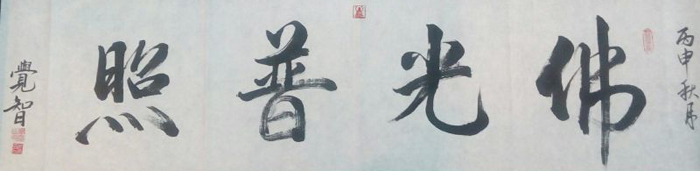 丙申秋月
佛光普照
覺智